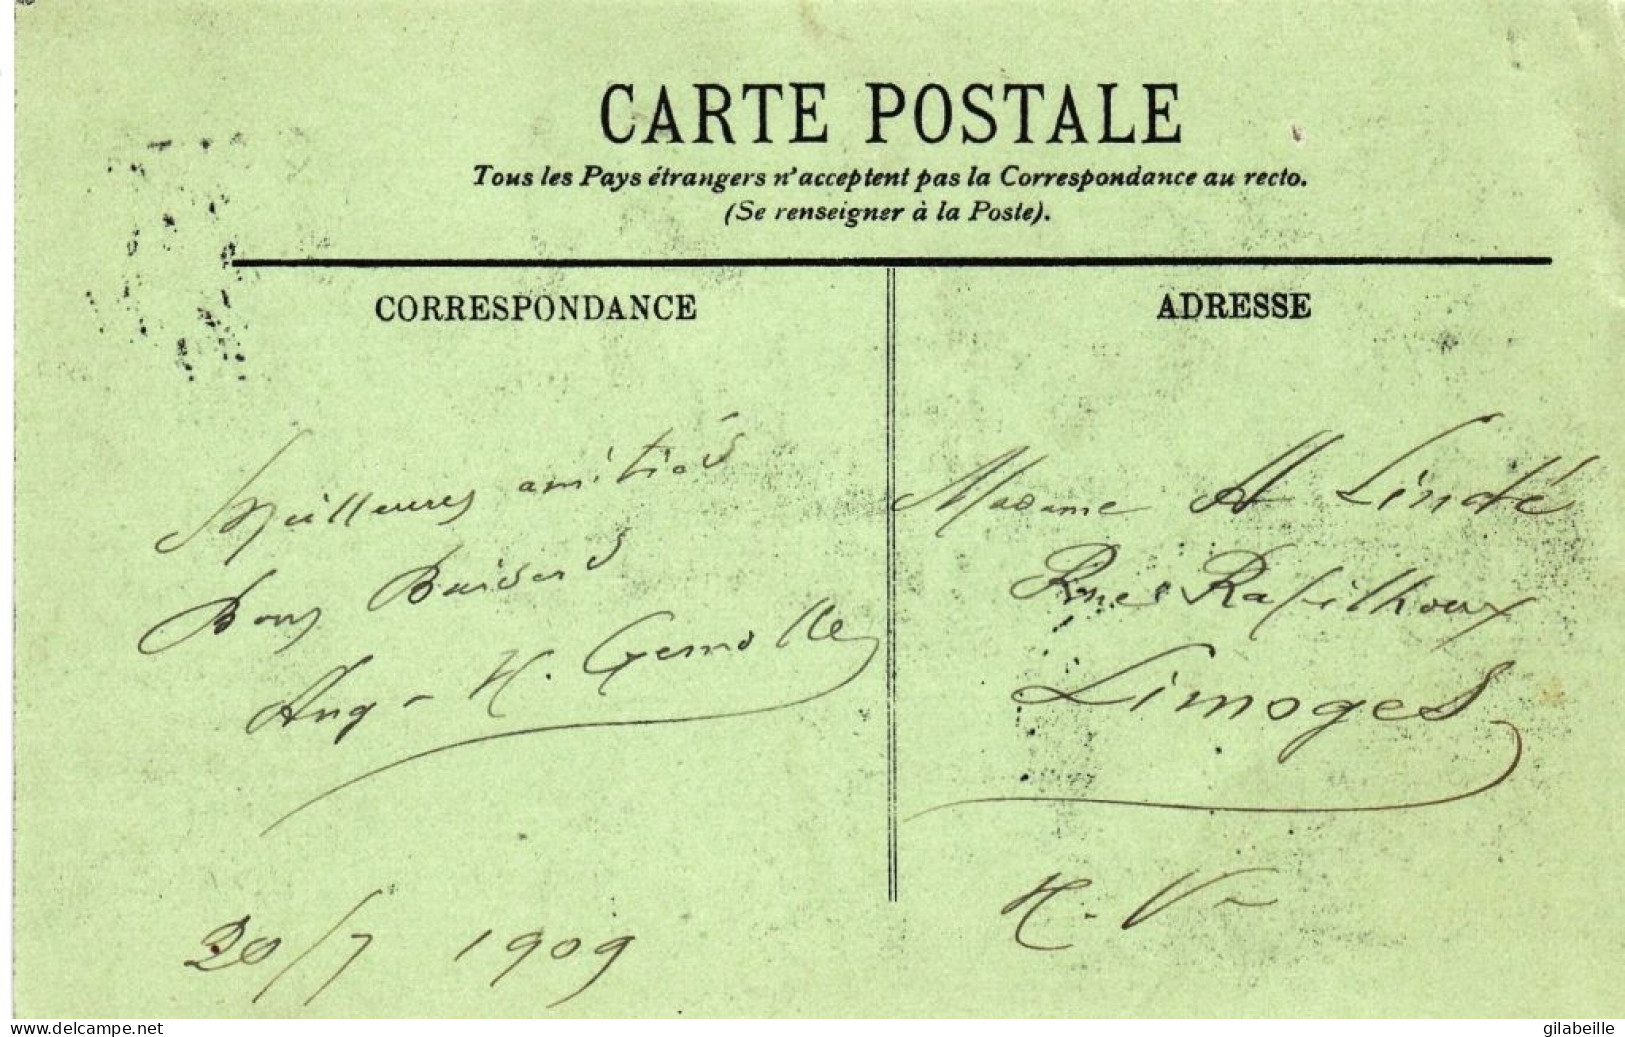 CARTE POSTALE
Tous les Pays étrangers n'acceptent pas la Correspondance au recto.
(Se renseigner à la Poste).
CORRESPONDANCE
ADRESSE
Meilleures amitiés
Bons Baisers
Aug - H.
20/7 1909
Madame A Lindé
Rafilhoux
Limoges
H. Vne
www.delcampe.net
gilabeille